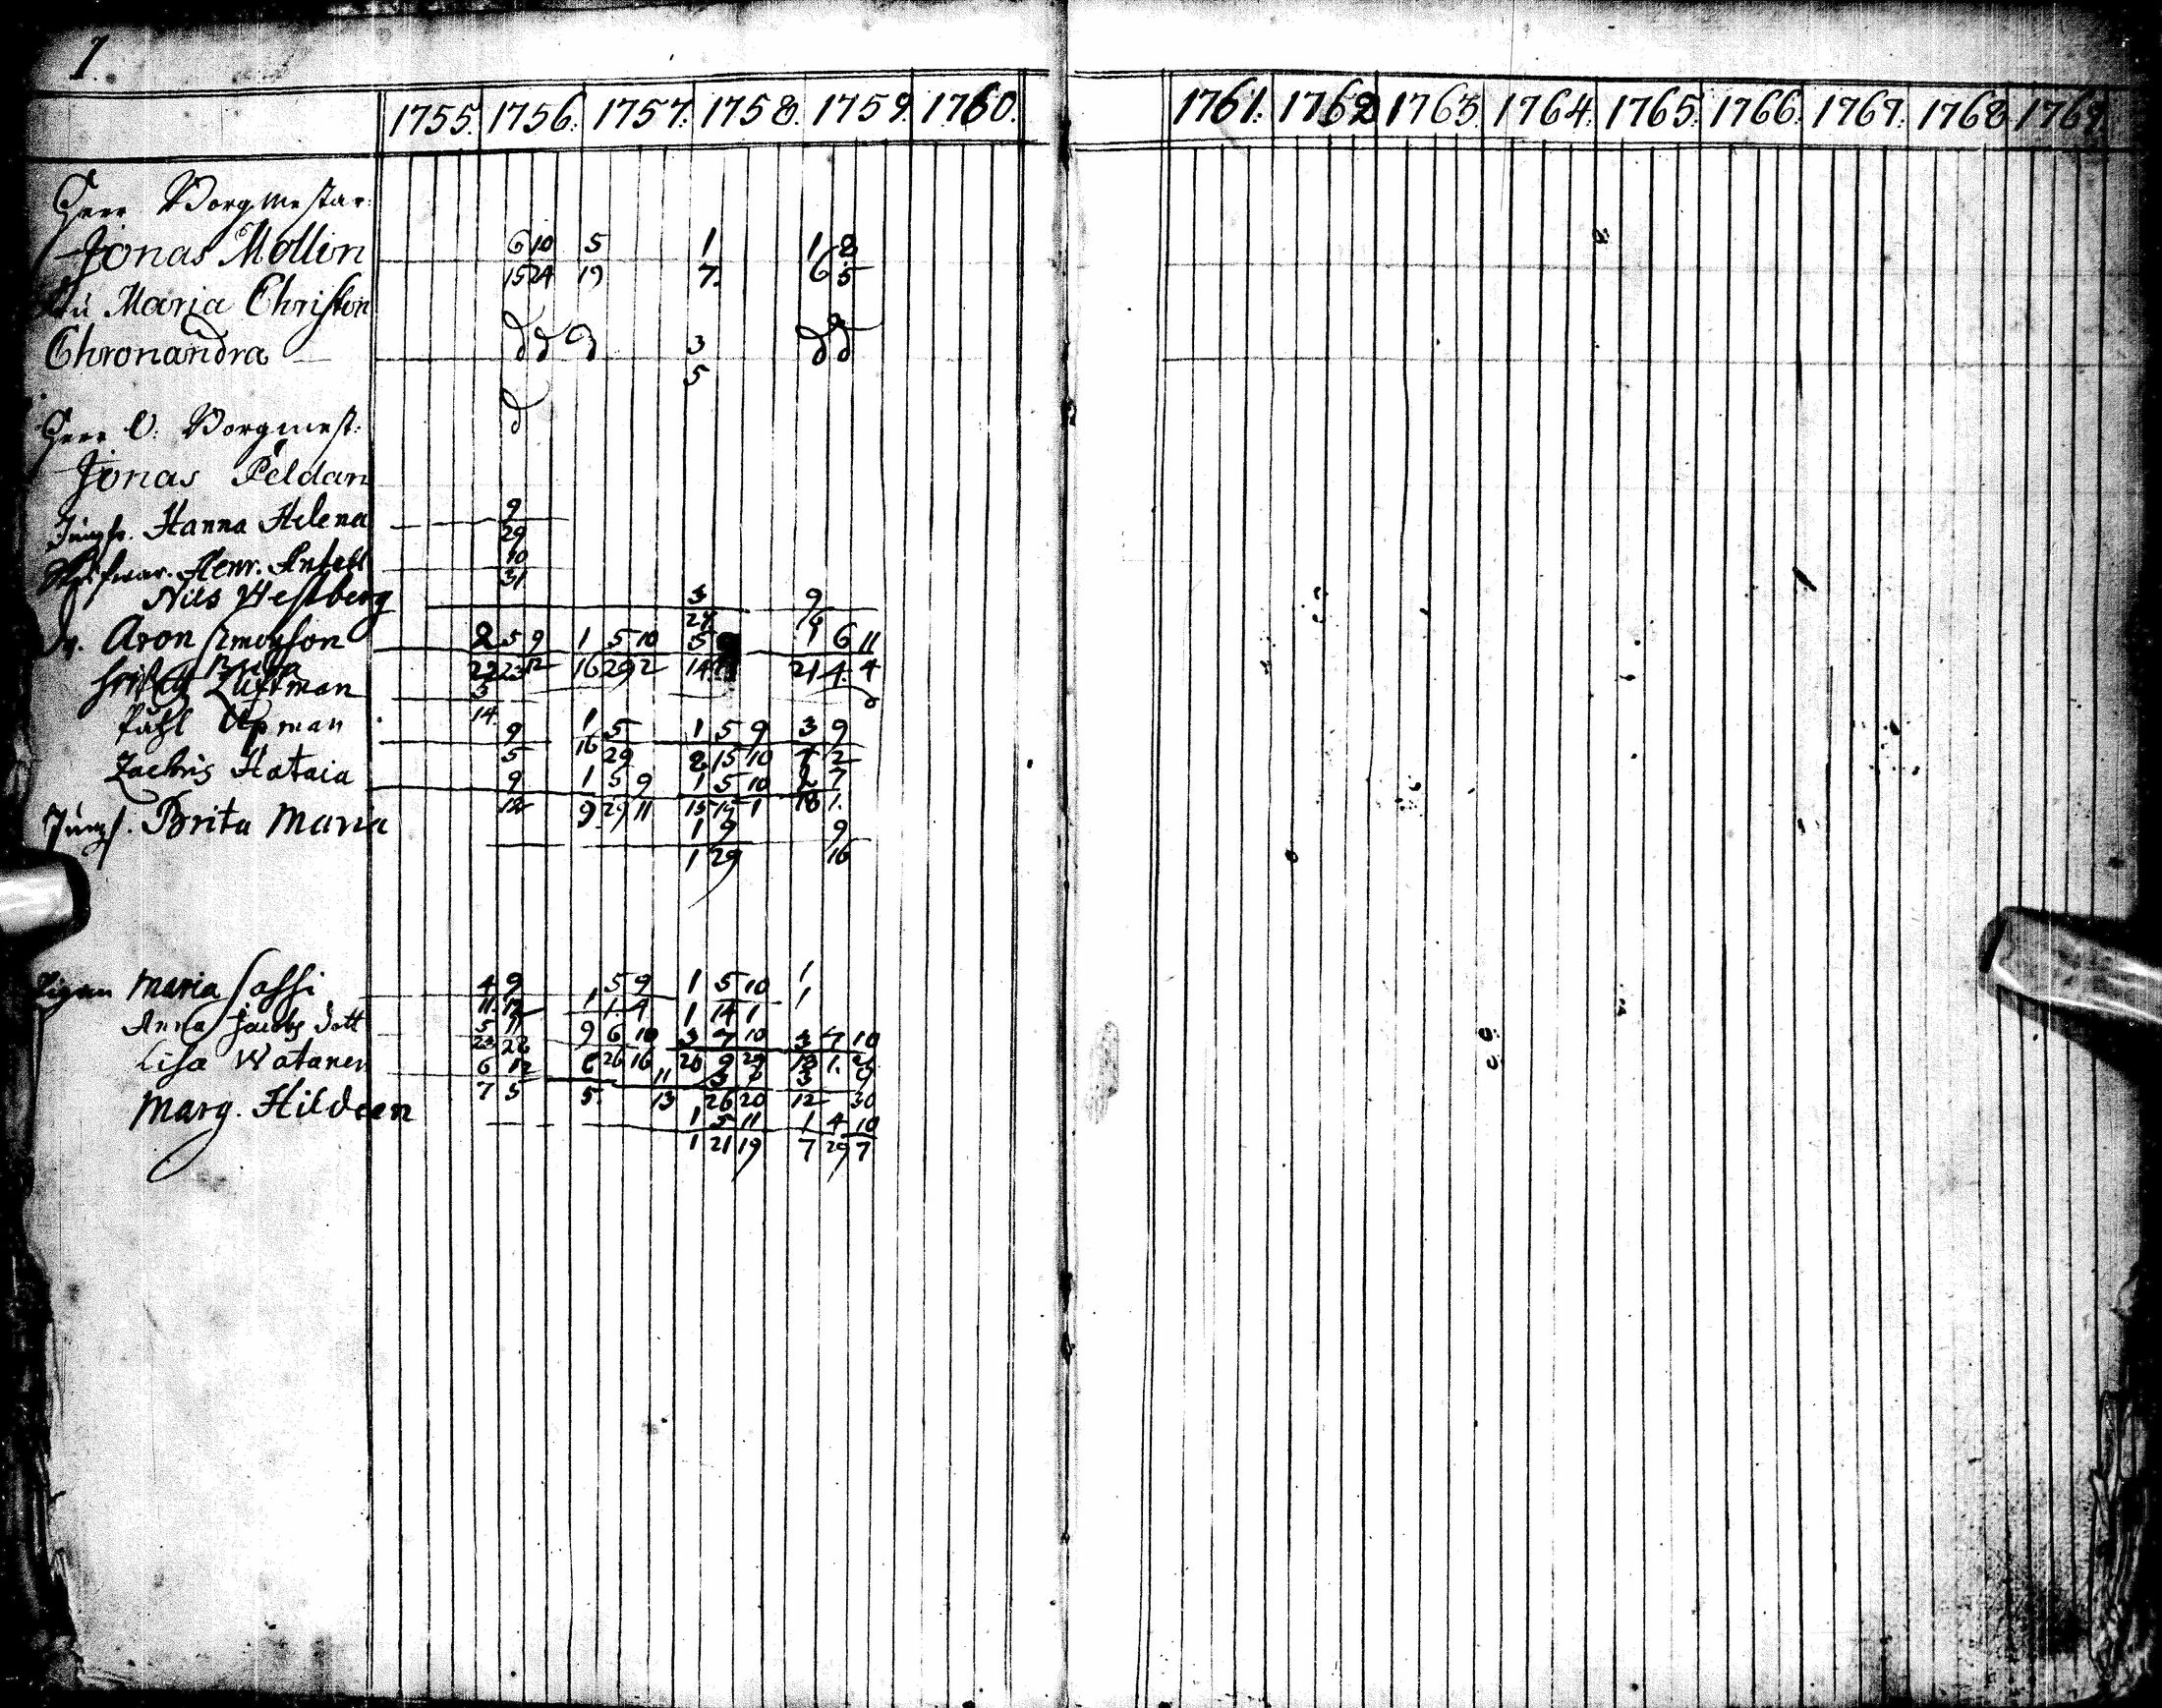 1.
1755. 1756. 1757. 1758. 1759. 1760. 1761. 1762 1763. 1764. 1765. 1766. 1767. 1768. 1769.
Herr Borgmestar:
Jonas Mollin 6 10 5 1 1 8
15 24 19 7. 6 5
Maria Christin
Chronandra d d d 3 d d
5
d
Herr V. Borgmest:
Jonas Peldan
Jungfr. Hanna Helena 9
29
Henr. 10
31
Nils Westberg 3 9
Aron Simonson 2 5 9 1 5 10 5 1 6 11
22 23 12 16 29 2 14 21 4 4
Luktman 3
14
Påhl Upman 9 1 5 1 5 9 3 9
5 16 29 2 15 10 7 2
Zachris Hataia 9 1 5 9 1 5 10 2 7
12 9 29 11 15 1 18 1.
Jungf. Brita Maria 1 9 9
1 29 16
Pigan Maria Sassi 4 9 5 9 1 5 10 1
11 12 1 1 4 1 14 1 1
Anna Jacobs dott 5 11 9 6 10 3 7 10 3 7 10
23 28 6 26 16 20 9 29 18 1.
Lisa Watanen 6 12 11 3 3 9
7 5 5 13 26 20 12 30
Marg. Hildeen 1 5 11 1 4 10
1 21 19 7 29 7